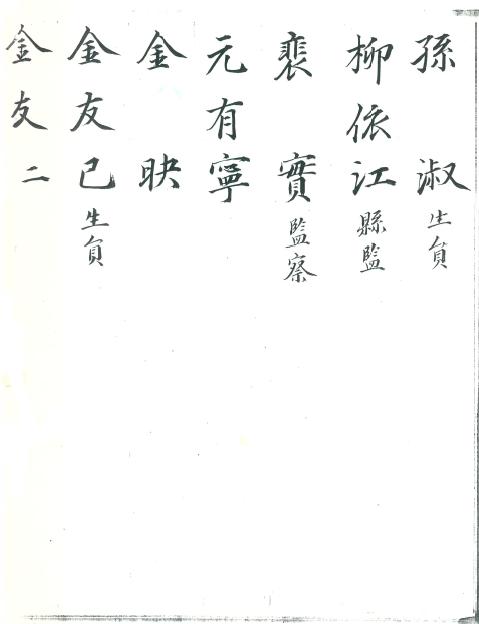 孫 淑 生員
柳依江 縣監
裵 實 監察
元有寧
金 㫼
金友巳 生員
金友二